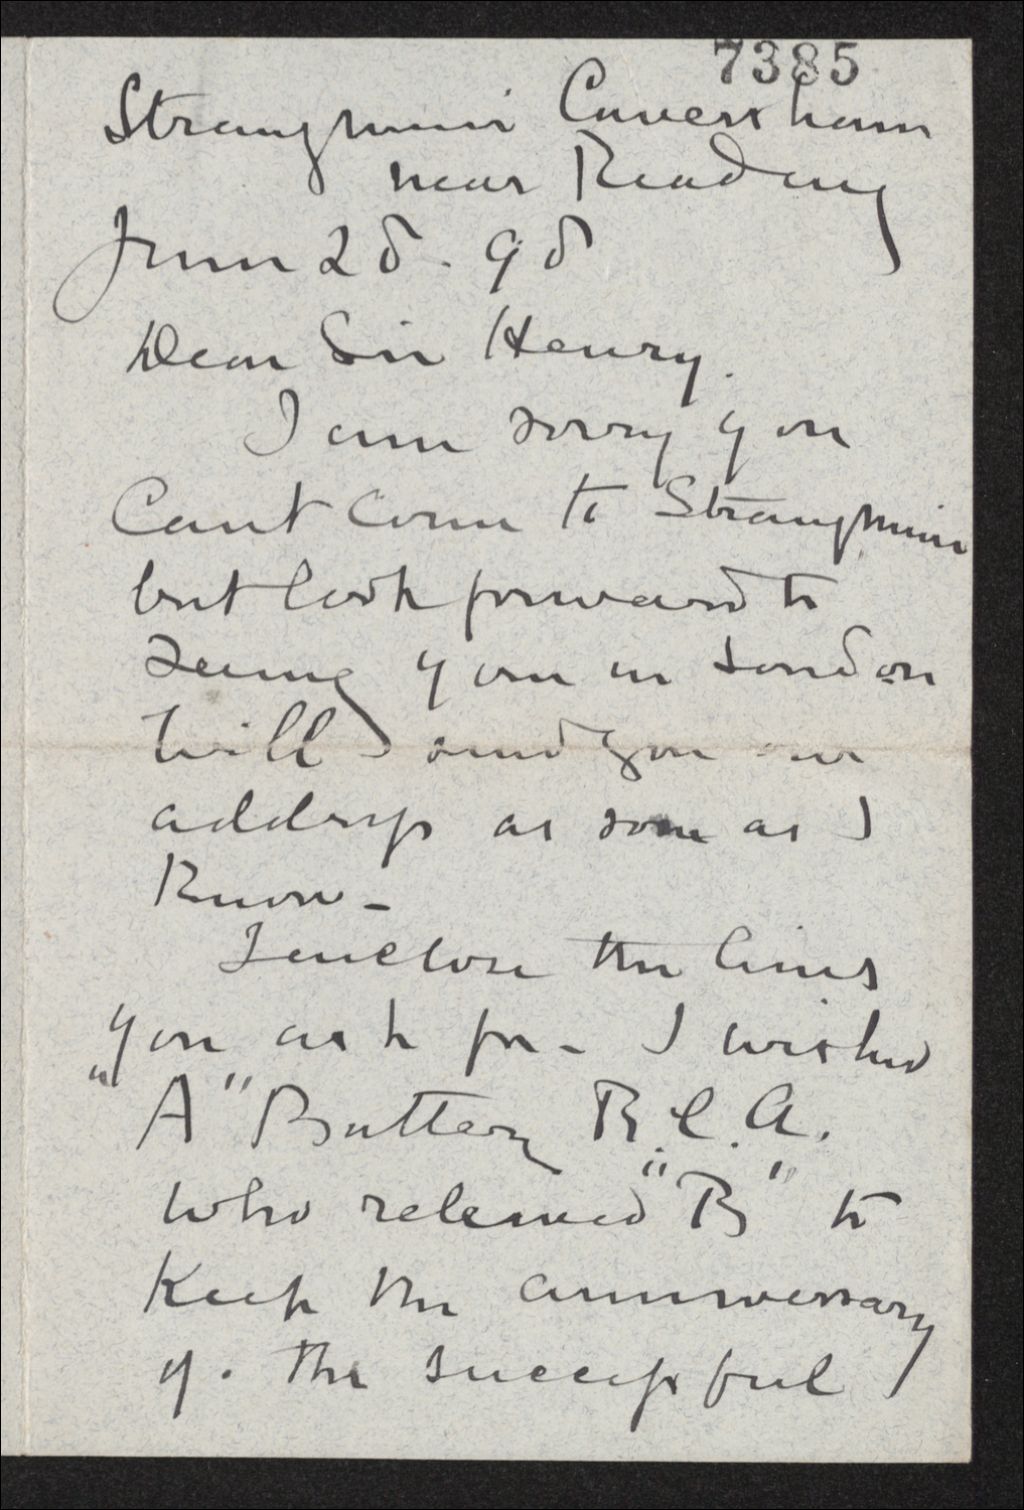 7385
Strangmuir Caversham
near Reading
June 28. 98
Dear Sir Henry.
I am sorry you
Cant come to Strangmuir
but look forward to
seeing you in London
Will send you our
address as soon as I
Know -
I enclose the lines
you ask for - I wished
"A" Battery R.C.A.
who relieved "B" to
Keep the anniversary
of. the successful